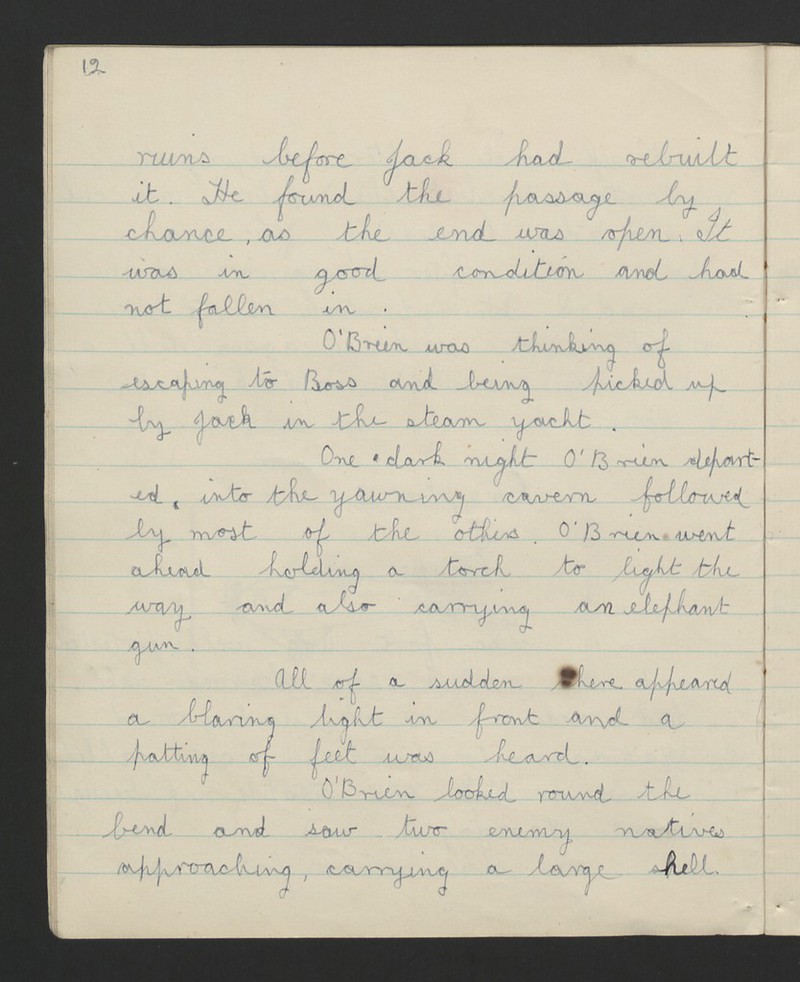 12
ruins before Jack had rebuilt
it. He found the passage by
chance, as the end was open. It
was in good condition and had
not fallen in.
O'Brien was thinking of
escaping to Boss and being picked up
by Jack in the steam yacht.
One dark night O'Brien depart-
ed, into the yawning cavern followed
by most of the others. O'Brien went
ahead holding a torch to light the
way and also carrying an elephant
gun.
All of a sudden there appeared
a blaring light in front and a
patting of feet was heard.
O'Brien looked round the
bend and saw two enemy natives
approaching, carrying a large shell.